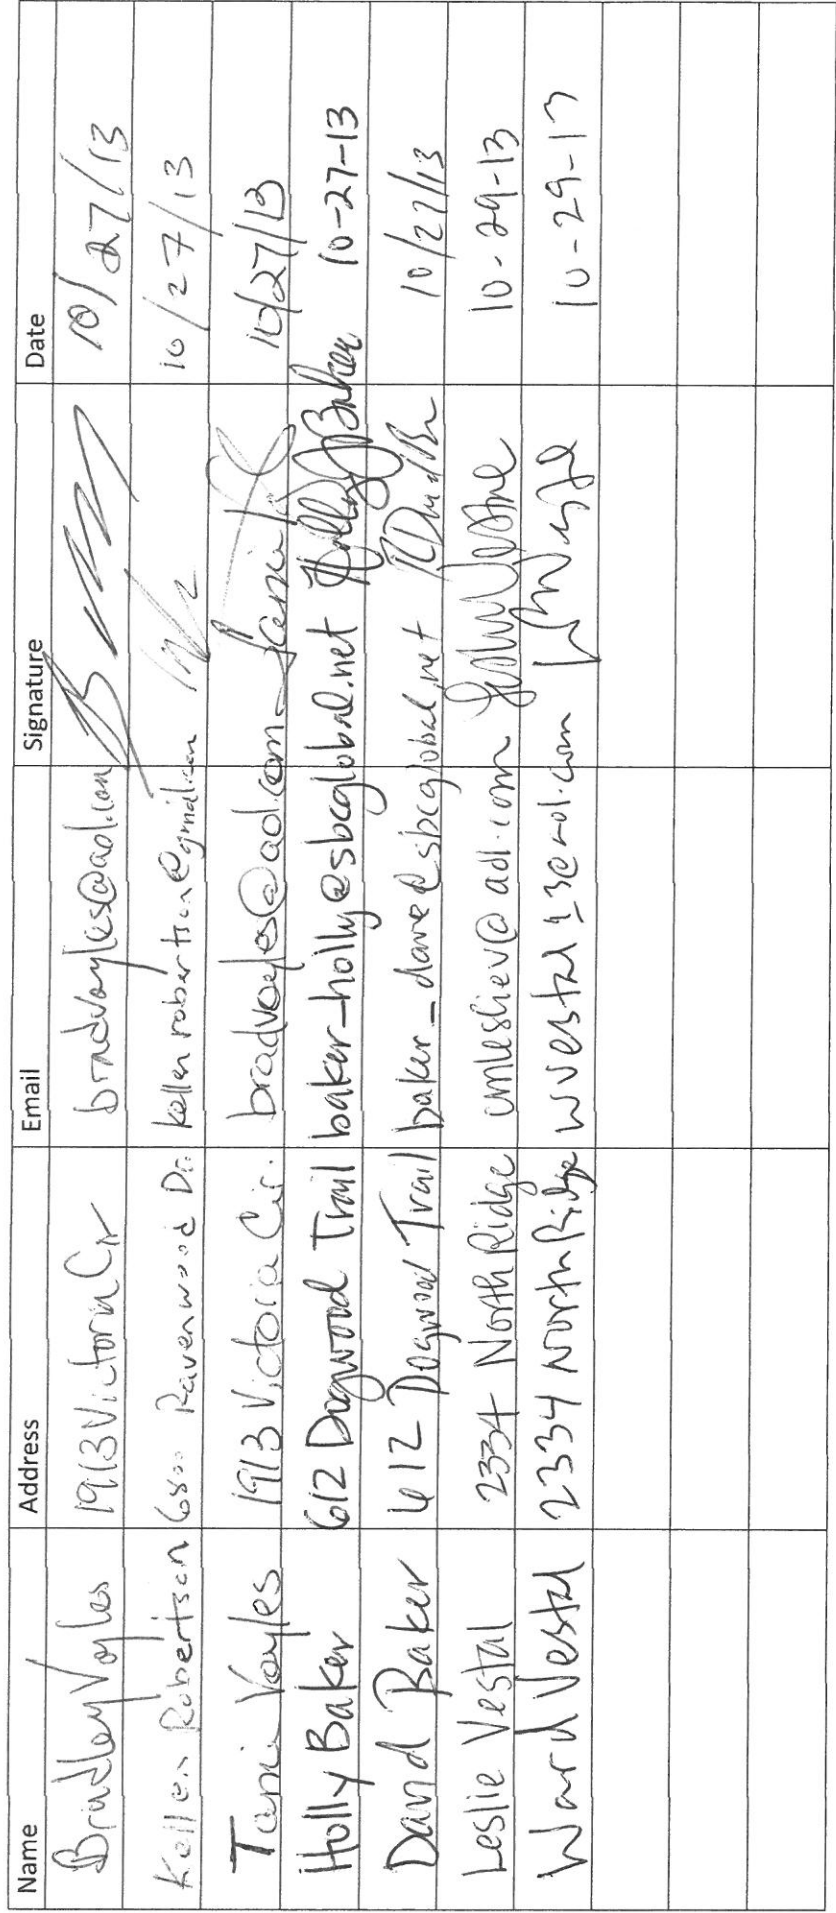 Name Address Email Signature Date
Bradley Voyles 1913 Victoria Cir bradvoyles@aol.com 10/27/13
Kellen Robertson 6800 Ravenwood Dr. kellenrobertson@gmail.com 10/27/13
Tami Voyles 1913 Victoria Cir. bradvoyles@aol.com 10/27/13
Holly Baker 612 Dogwood Trail baker_holly@sbcglobal.net Holly Baker 10-27-13
David Baker 612 Dogwood Trail baker_dave@sbcglobal.net 10/27/13
Leslie Vestal 2334 North Ridge @aol.com 10-29-13
Ward Vestal 2334 North Ridge 10-29-13